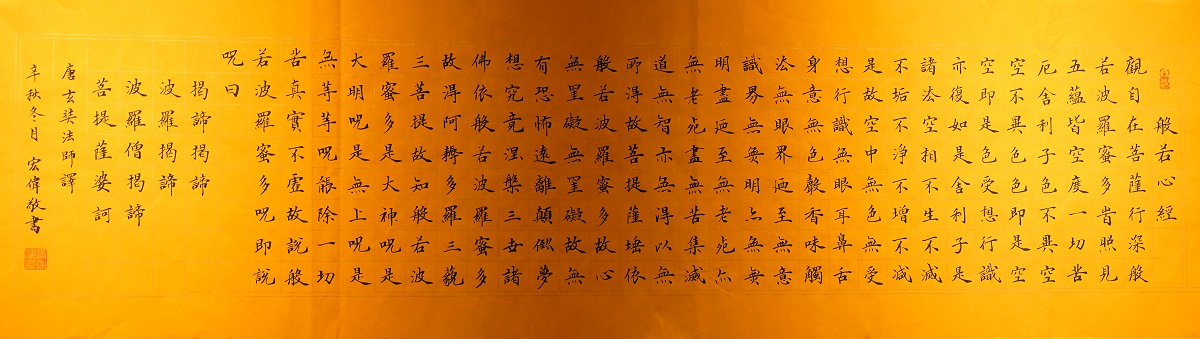 般若心經
觀自在菩薩行深般
若波羅蜜多旹照見
五蘊皆空度一切苦
厄舍利子色不異空
空不異色色即是空
空即是色受想行識
亦復如是舍利子是
諸法空相不生不滅
不垢不淨不增不減
是故空中無色無受
想行識無眼耳鼻舌
身意無色聲香味觸
法無眼界廼至無意
識界無無明亦無無
明盡廼至無老死亦
無老死盡無苦集滅
道無智亦無得以無
所得故菩提薩埵依
般若波羅蜜多故心
無罣礙無罣礙故無
有恐怖遠離顛倒夢
想究竟涅槃三世諸
佛依般若波羅蜜多
故得阿耨多羅三藐
三菩提故知般若波
羅蜜多是大神呪是
大明呪是無上呪是
無等等呪能除一切
苦真實不虛故說般
若波羅蜜多呪即說
呪曰
揭諦揭諦
波羅揭諦
波羅僧揭諦
菩提薩婆訶
唐玄奘法師譯
辛秋冬月 宏偉敬書